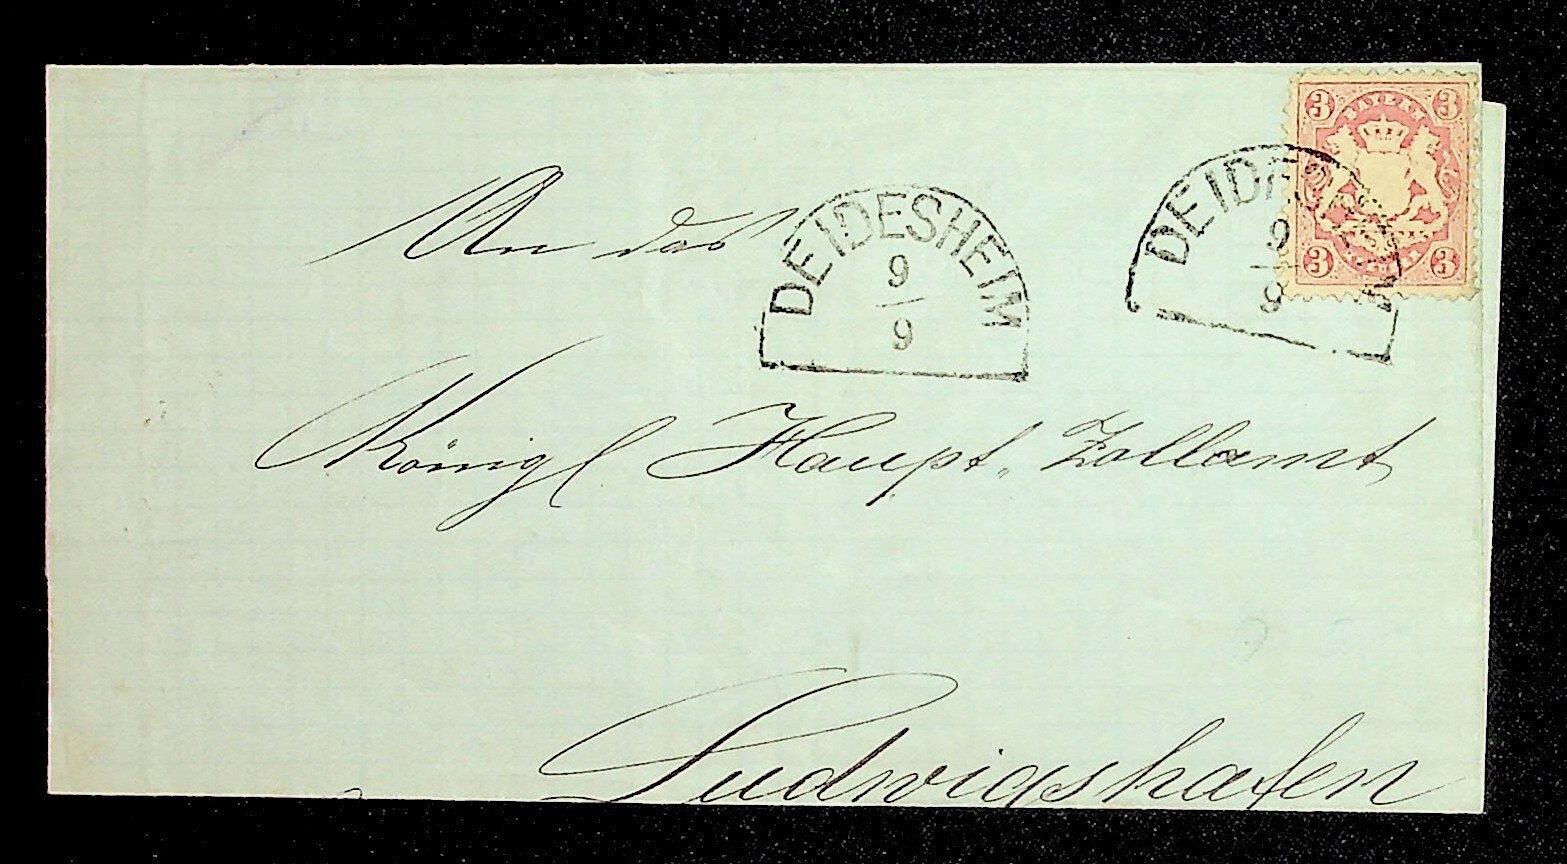 3 BAYERN 3
3 3
An das
DEIDESHEIM
9
9
DEIDESHEIM
9
9
Königl Haupt-Zollamt
Ludwigshafen